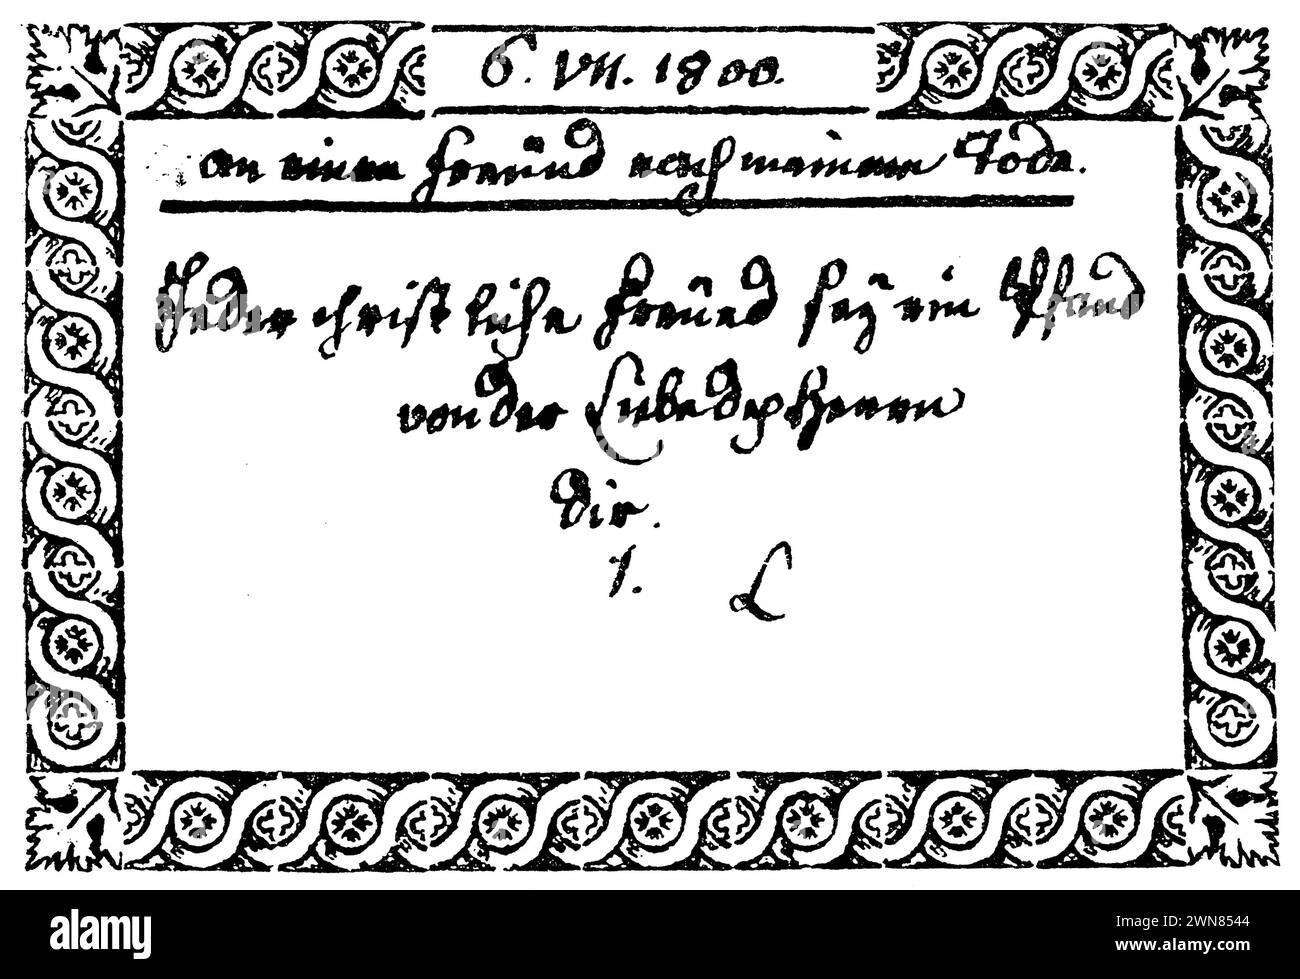 6. VII. 1800.
an einen Freünd nach meinem Tode.
Jeder christliche Freünd seÿ ein Pfand
von der Liebe des Herrn
dir.
1. L
alamy
Image ID: 2WN8544
www.alamy.com